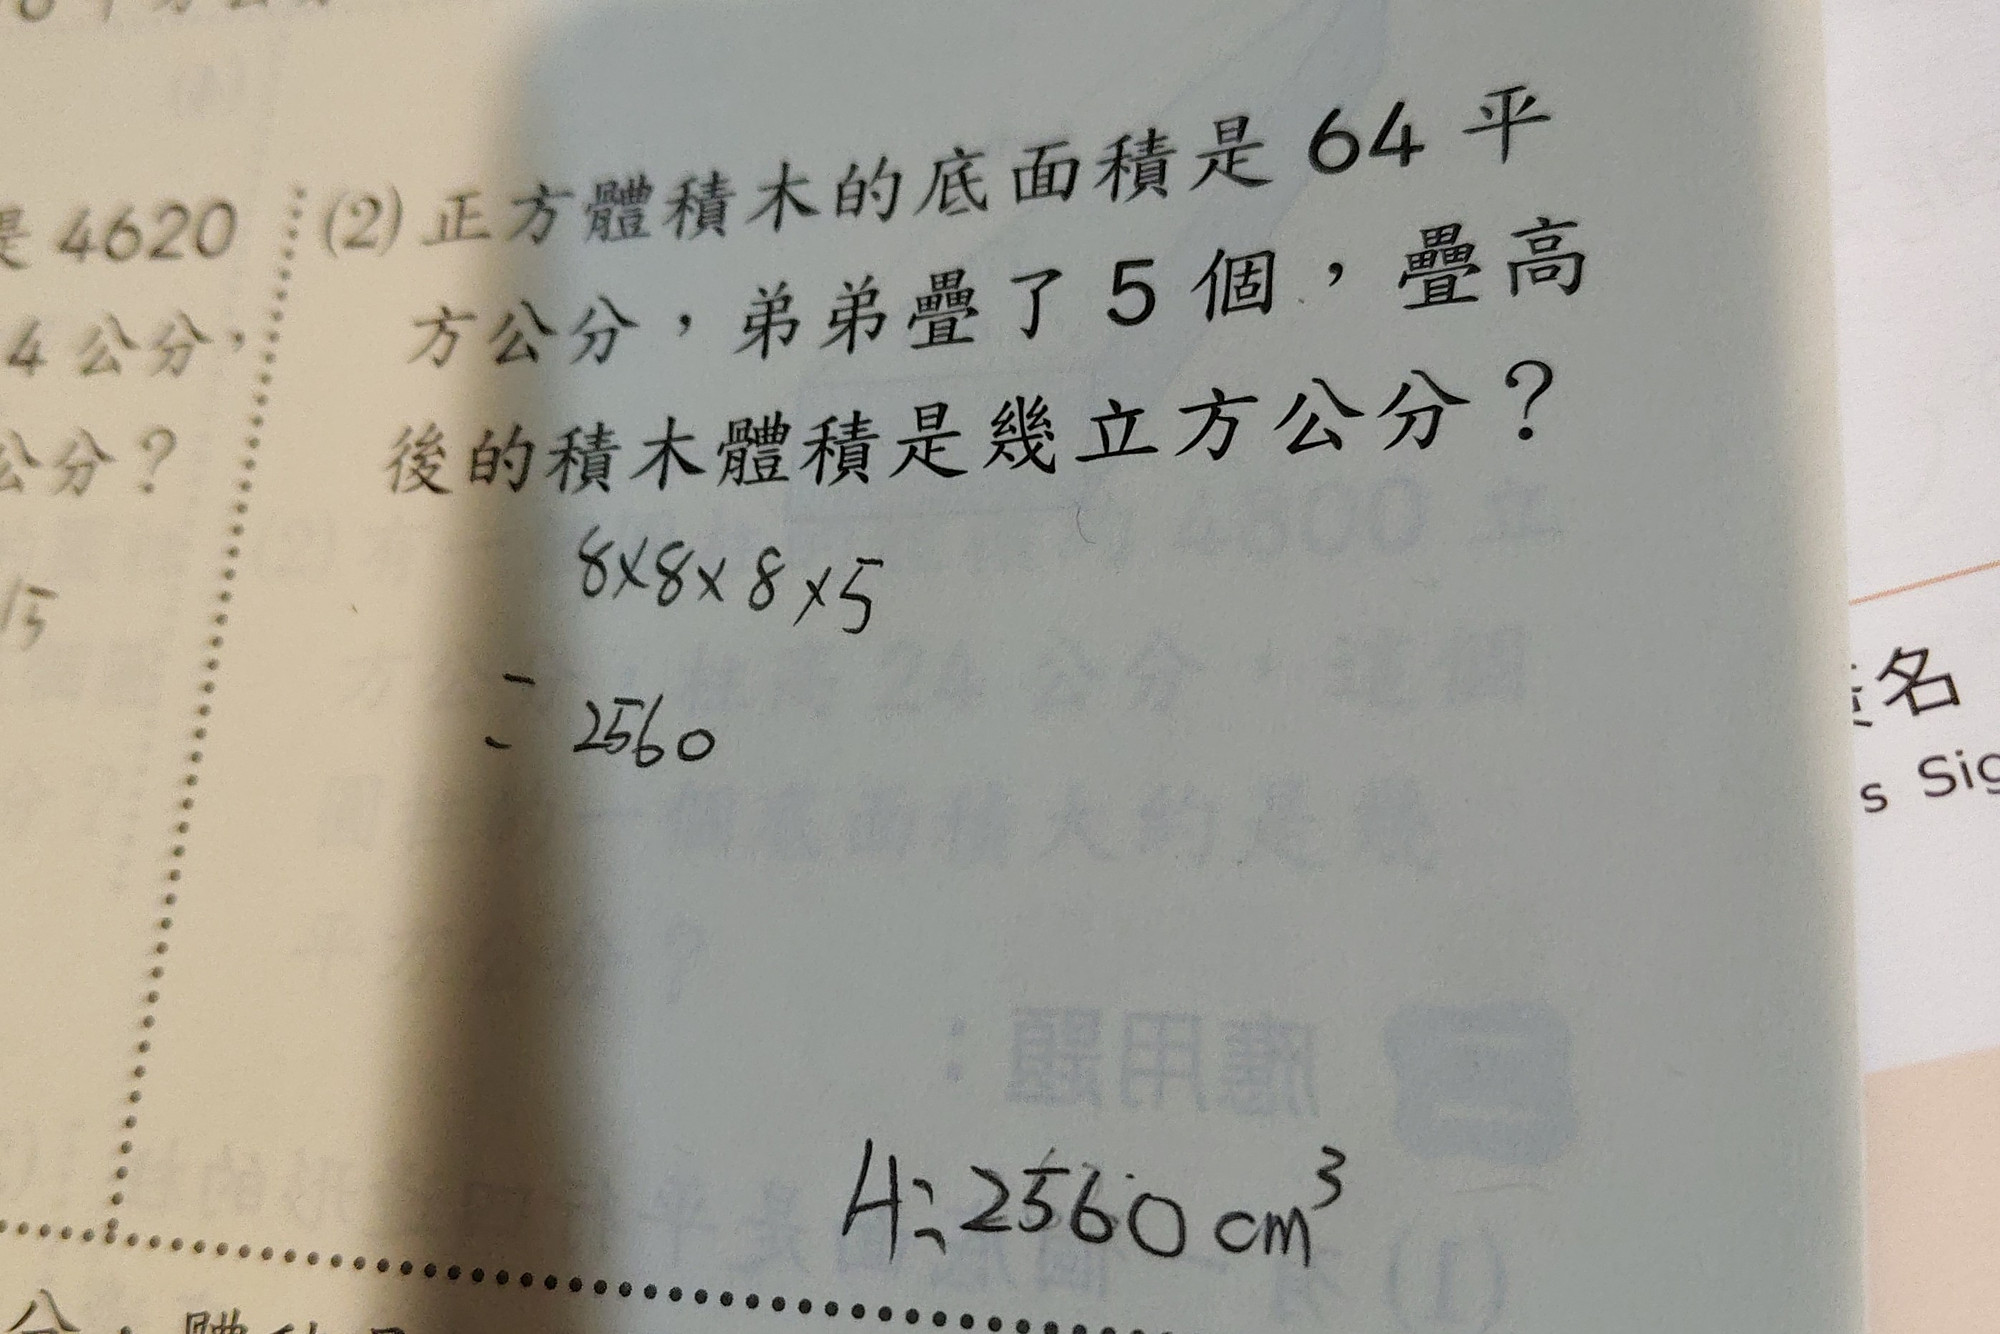 是 4620
4 公分，
公分？
15
(2) 正方體積木的底面積是 64 平
方公分，弟弟疊了 5 個，疊高
後的積木體積是幾立方公分？
8×8×8×5
= 2560
A: 2560 cm³
名
s Sig